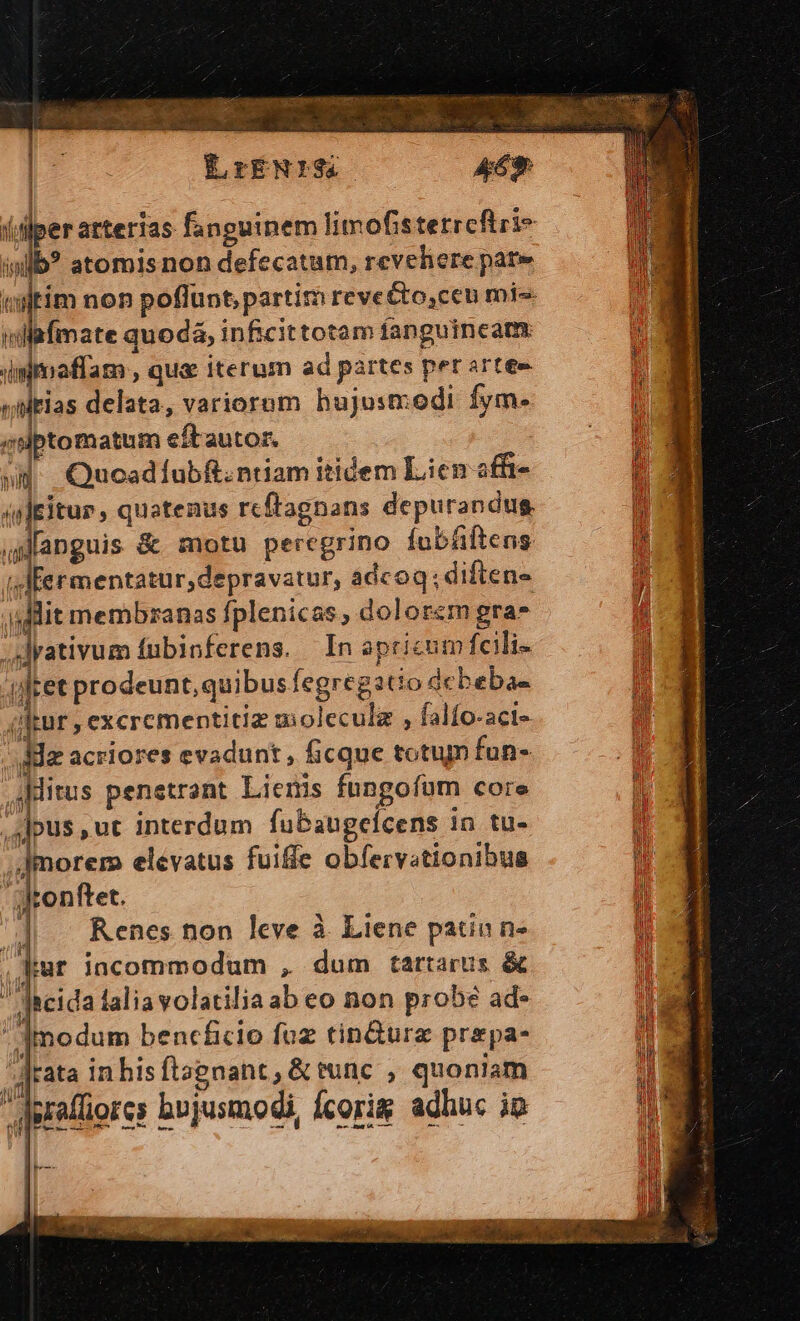 LIENIS. 469
per arterias ſanguinem limoſis terreſtri-
b⁹ atomis non defecatum, revehere par-
tim non poſſunt, partim revecto, ceu mi-
aſmate quodā, inficit totam ſanguineam
maſſam, quæ iterum ad partes per arte-
rias delata, variorum hujusmodi ſym-
ptomatum eſt autor.
Quoad ſubſtentiam itidem Lien affi-
citur, quatenus reſtagnans depurandus
ſanguis & motu peregrino ſubſiſtens
fermentatur, depravatur, adeoq; diſten-
dit membranas ſplenicas, dolorem gra-
vativum ſubinferens. In apricum ſcili-
cet prodeunt, quibus ſegregatio debeba-
tur, excrementitiæ moleculæ, ſalſo-aci-
dæ acriores evadunt, ſicque totum fun-
ditus penetrant Lienis fungoſum cor-
pus, ut interdum ſubaugeſcens in tu-
morem elevatus fuiſſe obſervationibus
conſtet.
Renes non leve à Liene patiun-
tur incommodum, dum tartarus &
acida ſalia volatilia ab eo non probè ad-
modum beneficio ſuæ tincturæ præpa-
rata in his ſtagnant, & tunc, quoniam
craſſiores hujusmodi ſcoriæ adhuc in